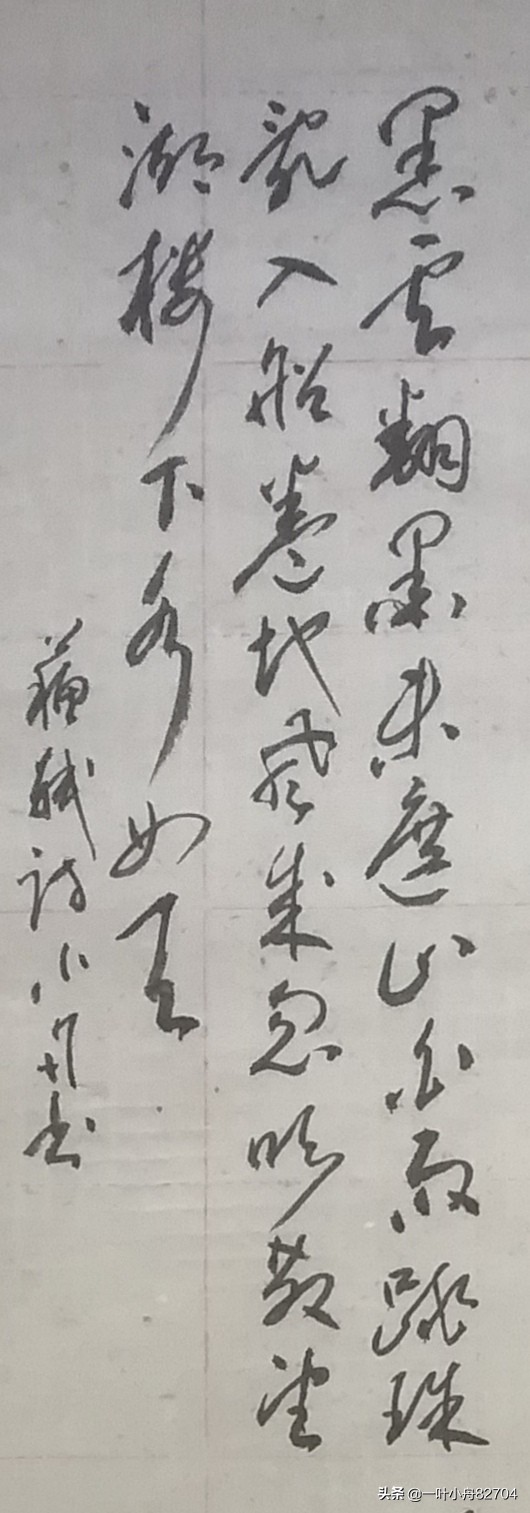 黑云翻墨未遮山白雨跳珠
乱入船卷地风来忽吹散望
湖楼下水如天
蘇轼诗小舟书
头条 @一叶小舟82704